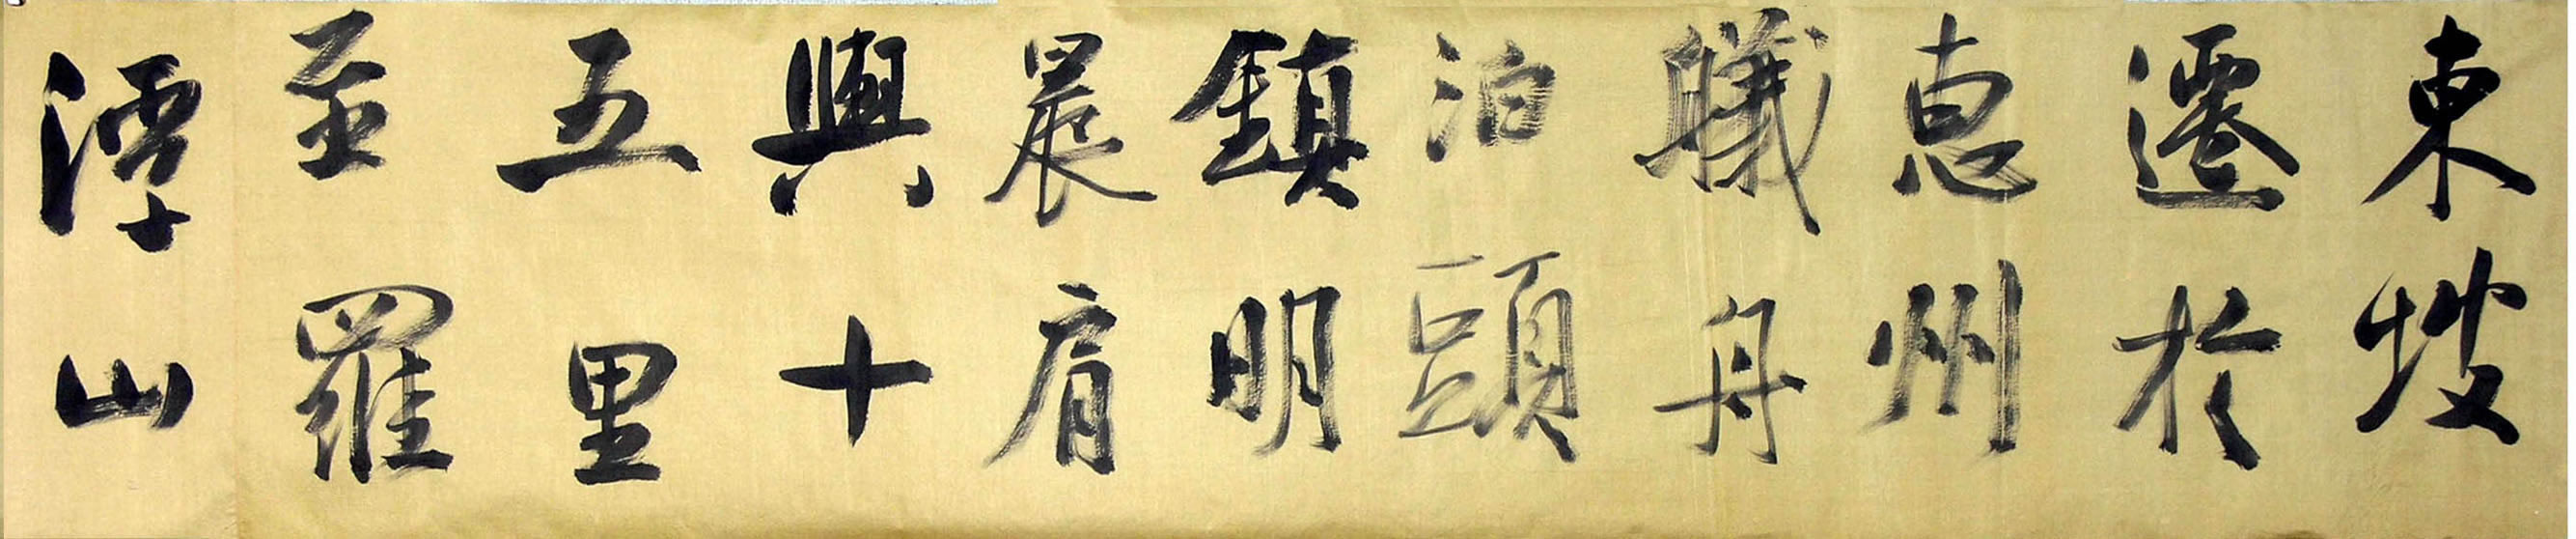 東坡
遷於
惠州
艤舟
泊頭
鎮明
晨肩
輿十
五里
至羅
浮山